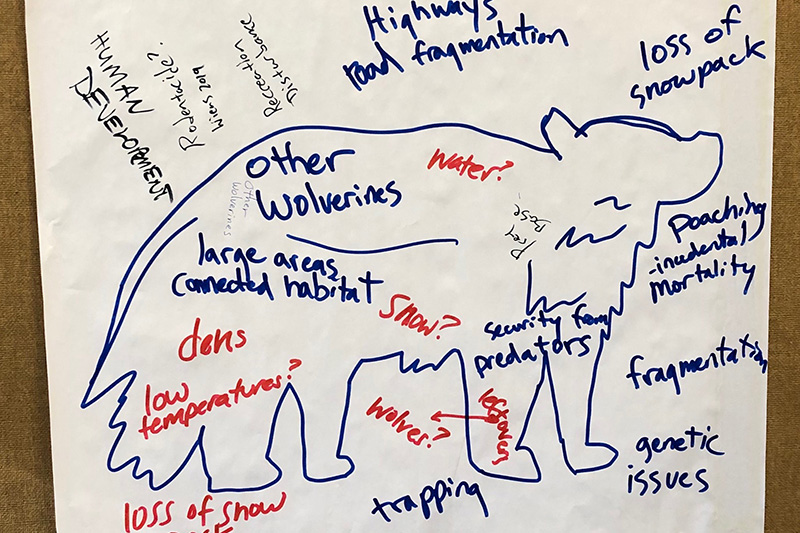 Highways
road fragmentation
loss of
snowpack
HUMAN
DEVELOPMENT
Rodentacide?
Wiens 2019
Recreation
Disturbance
other
wolverines
other
wolverines
water?
Prey
Base
large areas,
connected habitat
snow?
dens
low
temperatures?
security from
predators
wolves?
leftovers
poaching
-incedental
mortality
fragmentation
genetic
issues
trapping
loss of snow